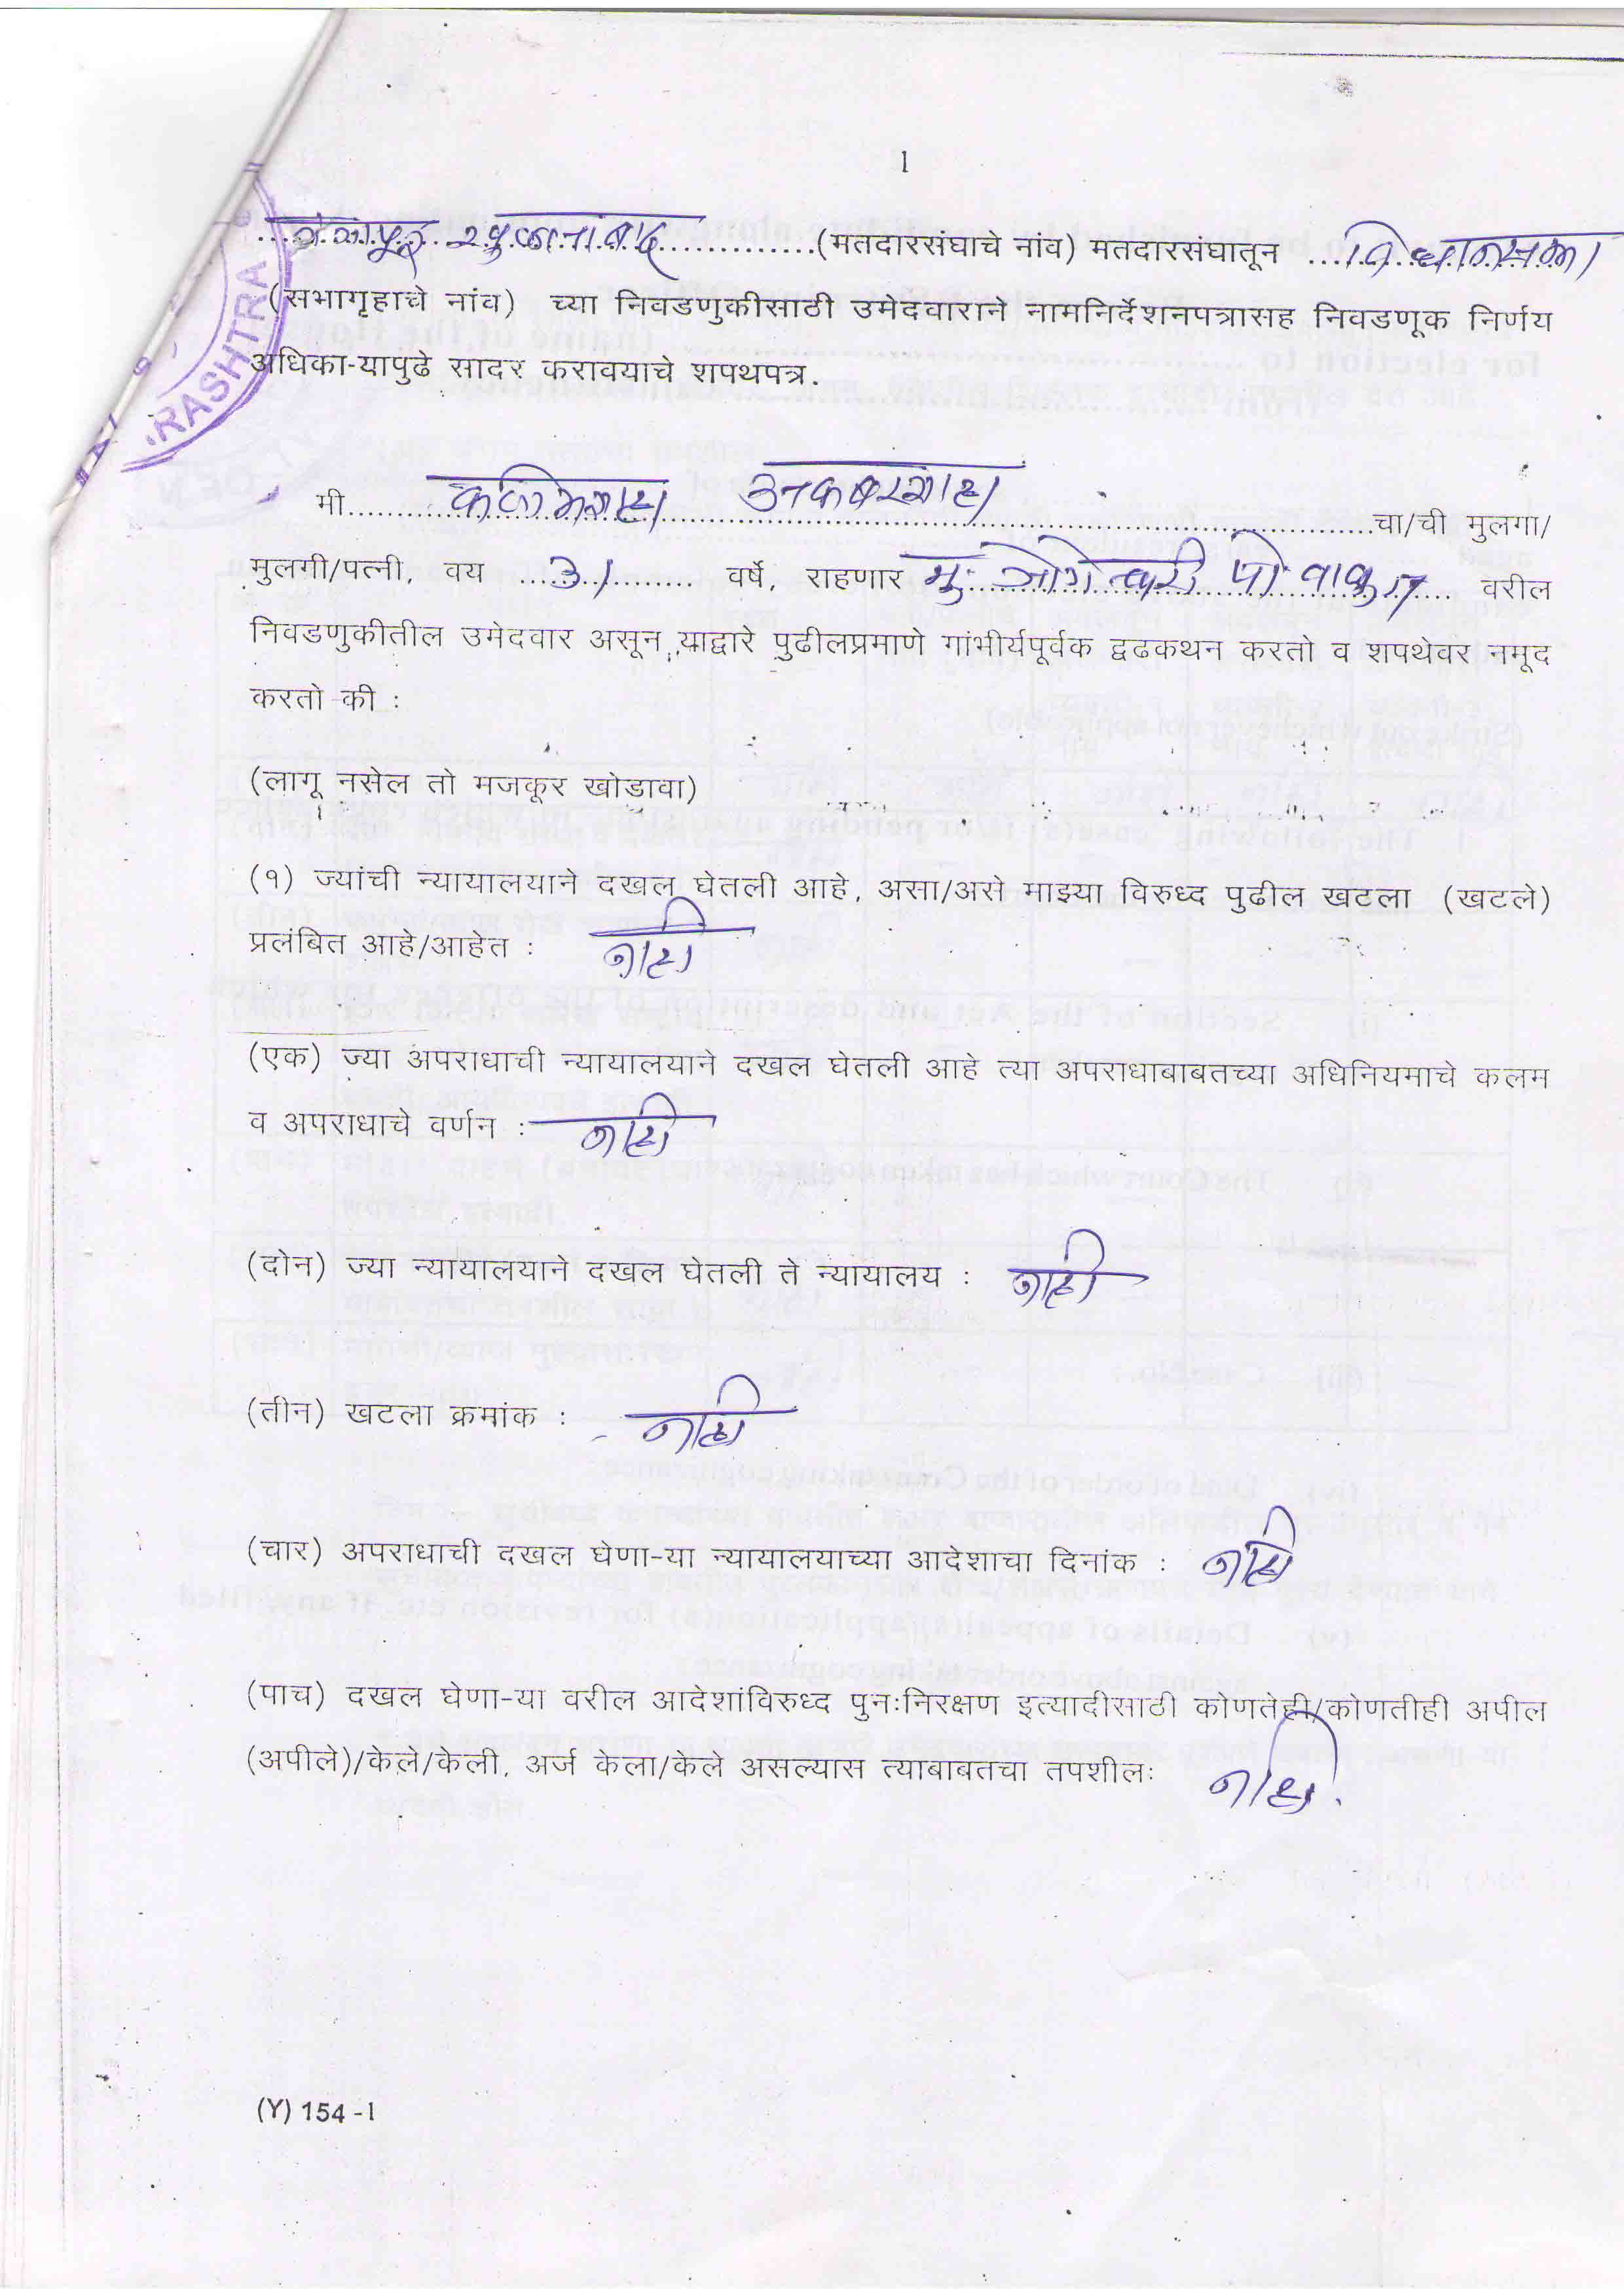 1
गंगापूर खुलताबाद (मतदारसंघाचे नांव) मतदारसंघातून विधानसभा
(सभागृहाचे नांव) च्या निवडणुकीसाठी उमेदवाराने नामनिर्देशनपत्रासह निवडणूक निर्णय
अधिका-यापुढे सादर करावयाचे शपथपत्र.
RASHTRA
मी कलीमशहा अकबरशाहा चा/ची मुलगा/
मुलगी/पत्नी, वय 31 वर्षे, राहणार मु. जोगेश्वरी पो वाळुज वरील
निवडणुकीतील उमेदवार असून याद्वारे पुढीलप्रमाणे गांभीर्यपूर्वक द्वढकथन करतो व शपथेवर नमूद
करतो की :
(लागू नसेल तो मजकूर खोडावा)
(१) ज्यांची न्यायालयाने दखल घेतली आहे, असा/असे माझ्या विरुध्द पुढील खटला (खटले)
प्रलंबित आहे/आहेत : नाही
(एक) ज्या अपराधाची न्यायालयाने दखल घेतली आहे त्या अपराधाबाबतच्या अधिनियमाचे कलम
व अपराधाचे वर्णन : नाही
(दोन) ज्या न्यायालयाने दखल घेतली ते न्यायालय : नाही
(तीन) खटला क्रमांक : नाही
(चार) अपराधाची दखल घेणा-या न्यायालयाच्या आदेशाचा दिनांक : नाही
(पाच) दखल घेणा-या वरील आदेशांविरुध्द पुनःनिरक्षण इत्यादीसाठी कोणतेही/कोणतीही अपील
(अपीले)/केले/केली, अर्ज केला/केले असल्यास त्याबाबतचा तपशीलः नाही.
(Y) 154 -1